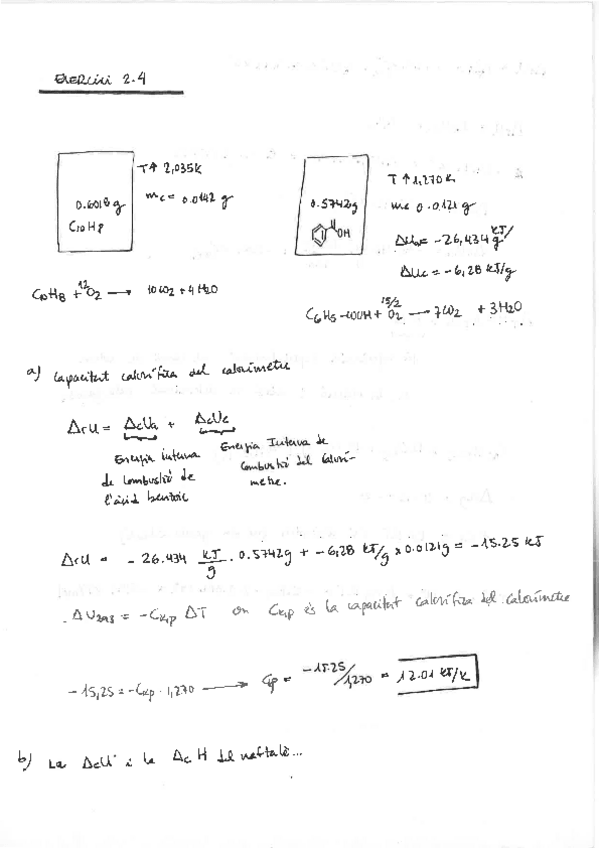 EXERCICI 2.4
T↑ 2,035K
mc = 0.0142 g
0.6018 g
C10H8
0.5742g
OH
T ↑ 1,270 K
mc 0.0121 g
ΔUa = -26,434 KJ/g
ΔUc = -6,28 KJ/g
C10H8 + 12 O2 → 10CO2 + 4H2O
C6H5-COOH + 15/2 O2 → 7CO2 + 3H2O
a) Capacitat calorífica del calorímetre
ΔcU = ΔcUa + ΔcUc
Energia interna de combustió de l'àcid benzoic
Energia Interna de combustió del calorí-metre.
ΔcU = - 26.434 KJ/g · 0.5742g + -6,28 KJ/g x 0.0121g = -15.25 KJ
ΔU298 = -Ckp ΔT on Ckp és la capacitat calorífica del calorímetre
-15,25 = -Ckp · 1,270 → Cp = -15.25/1,270 = 12.01 KJ/K
b) La ΔcU i la ΔcH del naftalè...